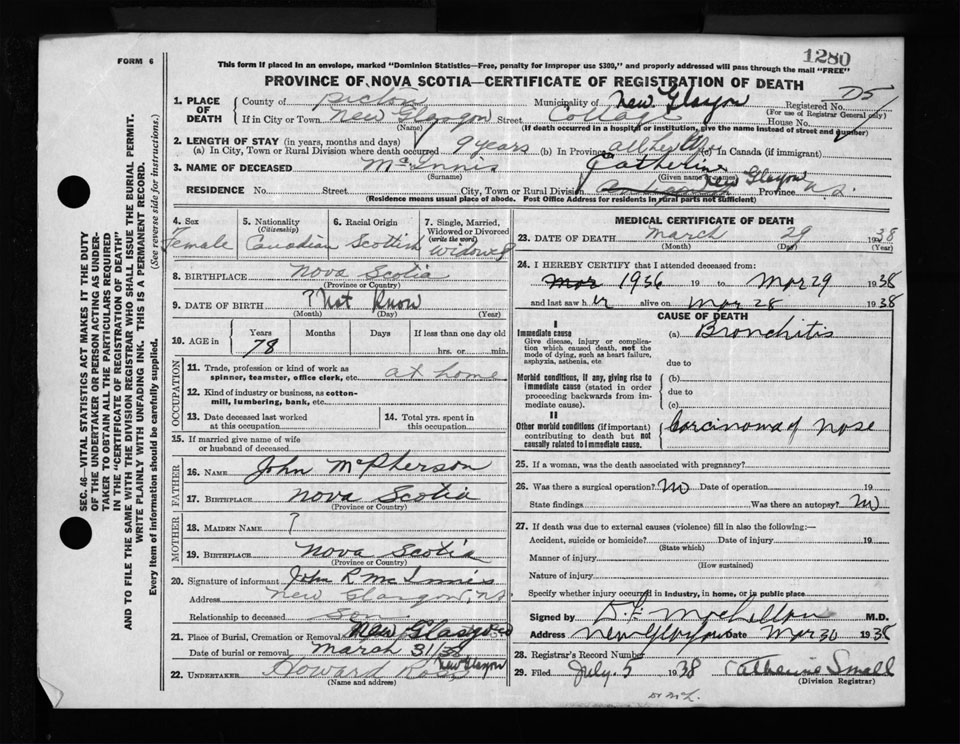 1280
FORM 6
This form if placed in an envelope, marked "Dominion Statistics—Free, penalty for improper use $300," and properly addressed will pass through the mail "FREE"
PROVINCE OF NOVA SCOTIA—CERTIFICATE OF REGISTRATION OF DEATH
1. PLACE OF DEATH
County of Pictou Municipality of New Glasgow Registered No. D5
(For use of Registrar General only)
If in City or Town New Glasgow Street College House No.
(Name) (If death occurred in a hospital or institution, give the name instead of street and number)
2. LENGTH OF STAY (in years, months and days)
(a) In City, Town or Rural Division where death occurred 9 years (b) In Province all her life (c) In Canada (if immigrant)
3. NAME OF DECEASED McInnis Catherine
(Surname) (Given name or names)
RESIDENCE No. Street City, Town or Rural Division New Glasgow Province N.S.
(Residence means usual place of abode. Post Office Address for residents in rural parts not sufficient)
4. Sex Female
5. Nationality (Citizenship) Canadian
6. Racial Origin Scottish
7. Single, Married, Widowed or Divorced (write the word) Widowed
8. BIRTHPLACE Nova Scotia
(Province or Country)
9. DATE OF BIRTH ? Not Know
(Month) (Day) (Year)
10. AGE in Years 78 Months Days If less than one day old hrs. or min.
OCCUPATION
11. Trade, profession or kind of work as spinner, teamster, office clerk, etc. at home
12. Kind of industry or business, as cotton-mill, lumbering, bank, etc.
13. Date deceased last worked at this occupation
14. Total yrs. spent in this occupation
15. If married give name of wife or husband of deceased
FATHER
16. NAME John McPherson
17. BIRTHPLACE Nova Scotia
(Province or Country)
MOTHER
18. MAIDEN NAME ?
19. BIRTHPLACE Nova Scotia
(Province or Country)
20. Signature of informant John R McInnis
Address New Glasgow, NS
Relationship to deceased Son
21. Place of Burial, Cremation or Removal New Glasgow
Date of burial or removal March 31/38
22. UNDERTAKER Howard Ross New Glasgow
(Name and address)
MEDICAL CERTIFICATE OF DEATH
23. DATE OF DEATH March 29 1938
(Month) (Day) (Year)
24. I HEREBY CERTIFY that I attended deceased from:
Mar 1936 19 to Mar 29 1938
and last saw her alive on Mar 28 1938
CAUSE OF DEATH
I
Immediate cause
Give disease, injury or complication which caused death, not the mode of dying, such as heart failure, asphyxia, asthenia, etc.
(a) Bronchitis
due to
Morbid conditions, if any, giving rise to immediate cause (stated in order proceeding backwards from immediate cause).
(b)
due to
(c)
II
Other morbid conditions (if important) contributing to death but not causally related to immediate cause.
Carcinoma of nose
25. If a woman, was the death associated with pregnancy?
26. Was there a surgical operation? No Date of operation 19
State findings Was there an autopsy? No
27. If death was due to external causes (violence) fill in also the following:—
Accident, suicide or homicide? Date of injury 19
(State which)
Manner of injury
(How sustained)
Nature of injury
Specify whether injury occurred in industry, in home, or in public place
Signed by M.D.
Address New Glasgow Date Mar 30 1938
28. Registrar's Record Number
29. Filed July 5 1938 Catherine Small
(Division Registrar)
SEC. 46—VITAL STATISTICS ACT MAKES IT THE DUTY
OF THE UNDERTAKER OR PERSON ACTING AS UNDER-
TAKER TO OBTAIN ALL THE PARTICULARS REQUIRED
IN THE "CERTIFICATE OF REGISTRATION OF DEATH"
AND TO FILE THE SAME WITH THE DIVISION REGISTRAR WHO SHALL ISSUE THE BURIAL PERMIT.
WRITE PLAINLY WITH UNFADING INK. THIS IS A PERMANENT RECORD.
Every item of information should be carefully supplied. (See reverse side for instructions.)